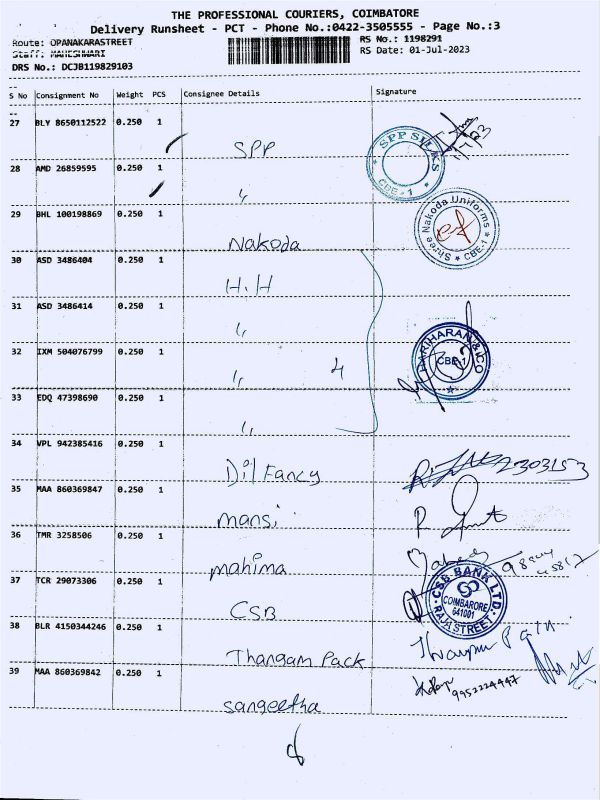 THE PROFESSIONAL COURIERS, COIMBATORE
Delivery Runsheet - PCT - Phone No.:0422-3505555 - Page No.:3
Route: OPANAKARASTREET
RS No.: 1198291
Staff: MAHESHWARI
RS Date: 01-Jul-2023
DRS No.: DCJB119829103
S No Consignment No Weight PCS Consignee Details Signature
27 BLY 8650112522 0.250 1 SPP
SPP SILKS CBE-1
1/7/23
28 AMD 26859595 0.250 1 "
29 BHL 100198869 0.250 1 Nakoda
Shree Nakoda Uniforms CBE-1
30 ASD 3486404 0.250 1 H.H
31 ASD 3486414 0.250 1 "
32 IXM 504076799 0.250 1 " 4
HARIHARAN & CO CBE-1
33 EDQ 47398690 0.250 1 "
34 VPL 942385416 0.250 1 Dil Fancy
35 MAA 860369847 0.250 1 mansi
36 TMR 3258506 0.250 1 mahima
37 TCR 29073306 0.250 1 CSB
CSB BANK LTD. COIMBARORE 641001 RAJA STREET
38 BLR 4150344246 0.250 1 Thangam Pack
39 MAA 860369842 0.250 1 sangeetha
9952224447